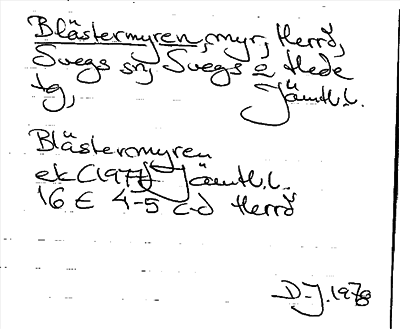 Blästermyren, myr, Herrö,
Svegs sn, Svegs o Hede
tg, Jämtl.l.
Blästermyren
ek (1977) Jämtl.l.
16 E 4-5 c-d Herrö
D-J. 1978